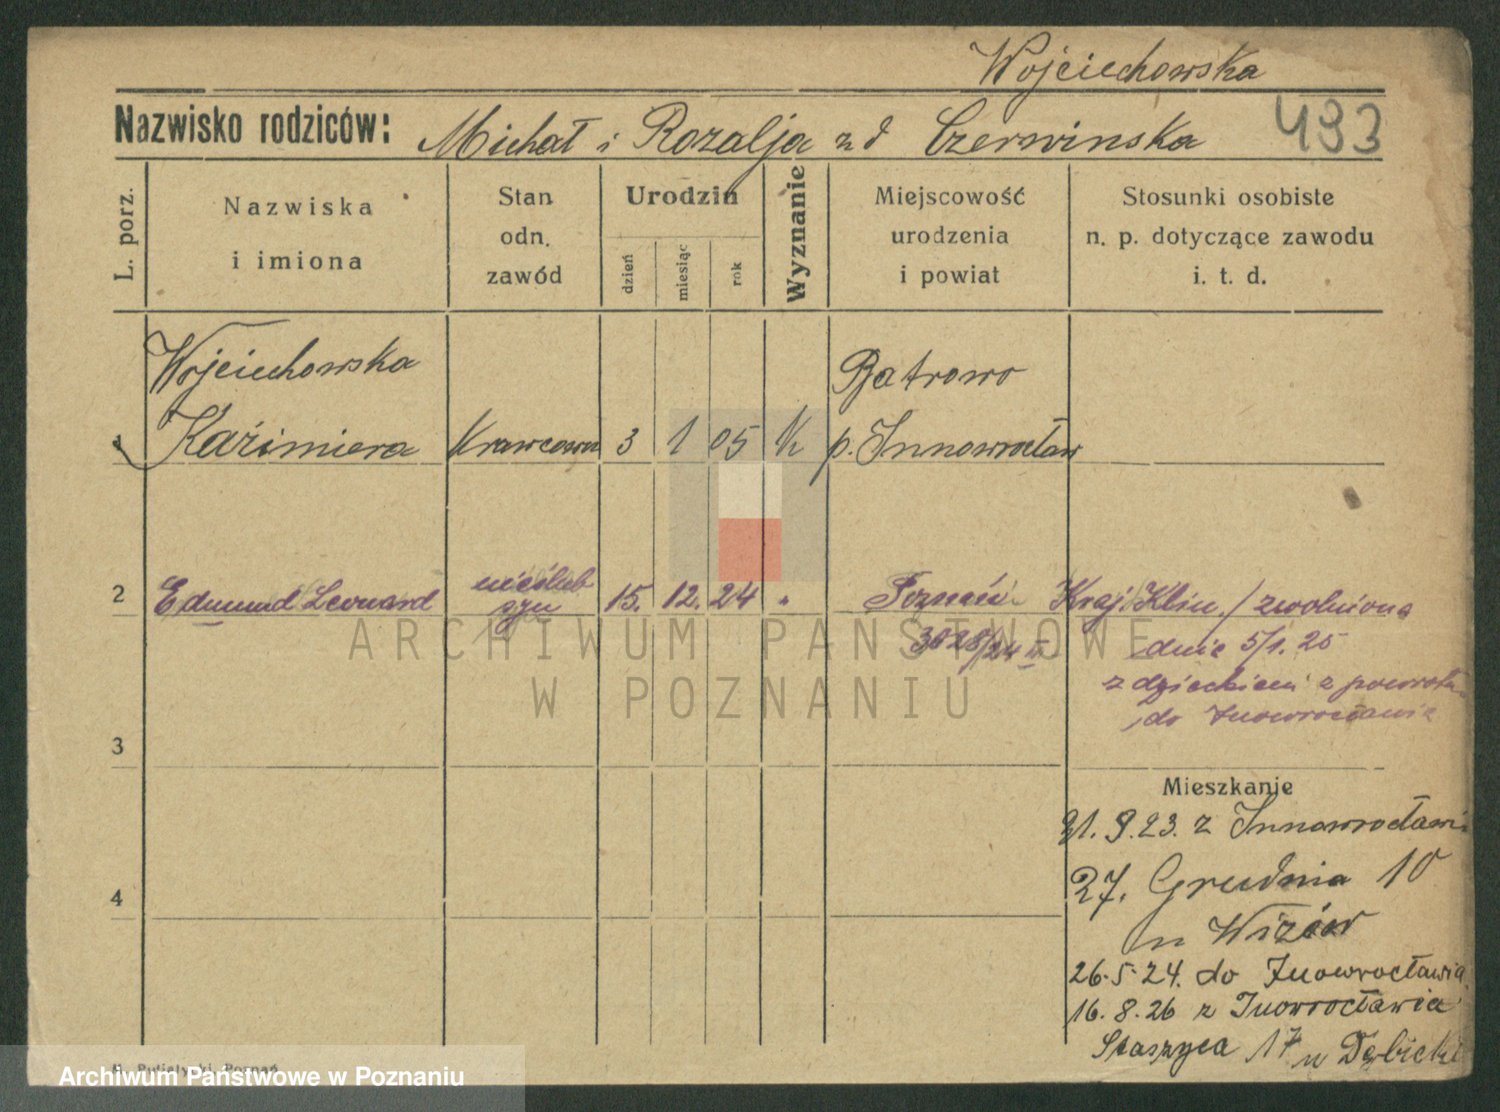 Wojciechowska
Nazwisko rodziców: Michał i Rozalja zd Czerwinska 493
L. porz.
Nazwiska i imiona
Stan odn. zawód
Urodzin
dzień
miesiąc
rok
Wyznanie
Miejscowość urodzenia i powiat
Stosunki osobiste n. p. dotyczące zawodu i. t. d.
Wojciechowska Batrowo
1 Kaźimiera Krawcowa 3 1 05 K p. Innowrocław
nieślub
2 Edmund Leonard syn 15. 12. 24 " Poznań Kraj. Klin. / zwolniona
3028/24 II dnie 5/1. 25
z dzieckiem z powrotem
do Inowrocławia
3
Mieszkanie
21. 9. 23. z Innowrocławia
27. Grudnia 10
4
u Wizów
26. 5. 24. do Inowrocławia
16. 8. 26 z Inowrocławia
Staszyca 17 u Dębicki
ARCHIWUM PAŃSTWOWE
W POZNANIU
Archiwum Państwowe w Poznaniu